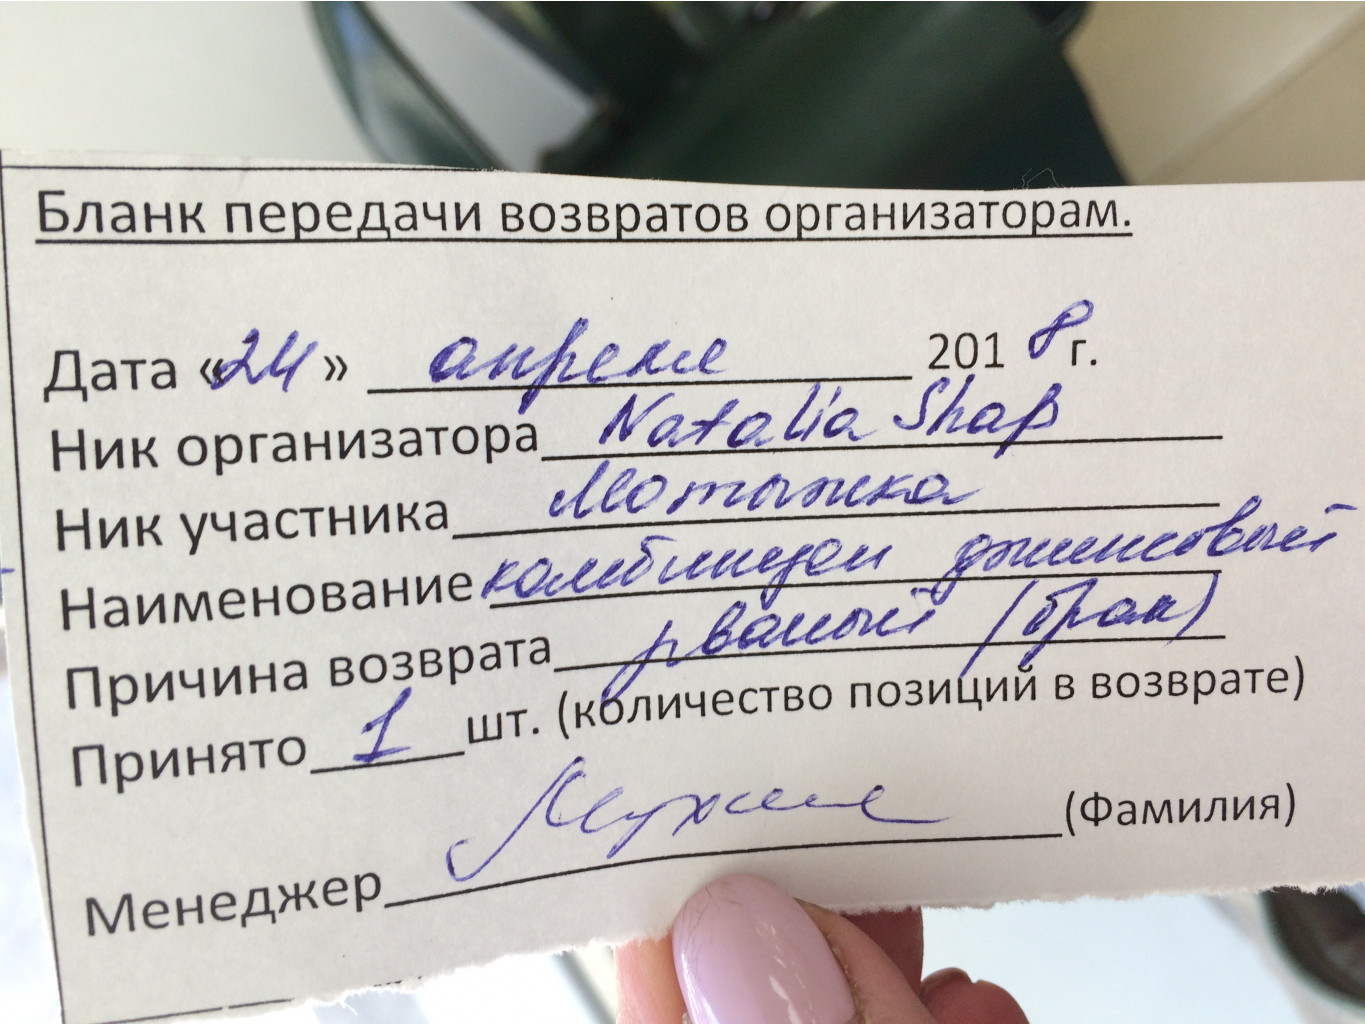 Бланк передачи возвратов организаторам.
Дата «24» апреля 2018 г.
Ник организатора Natalia Shap
Ник участника Мотыжка
Наименование комбинезон джинсовый
Причина возврата рваный (брак)
Принято 1 шт. (количество позиций в возврате)
Менеджер (Фамилия)